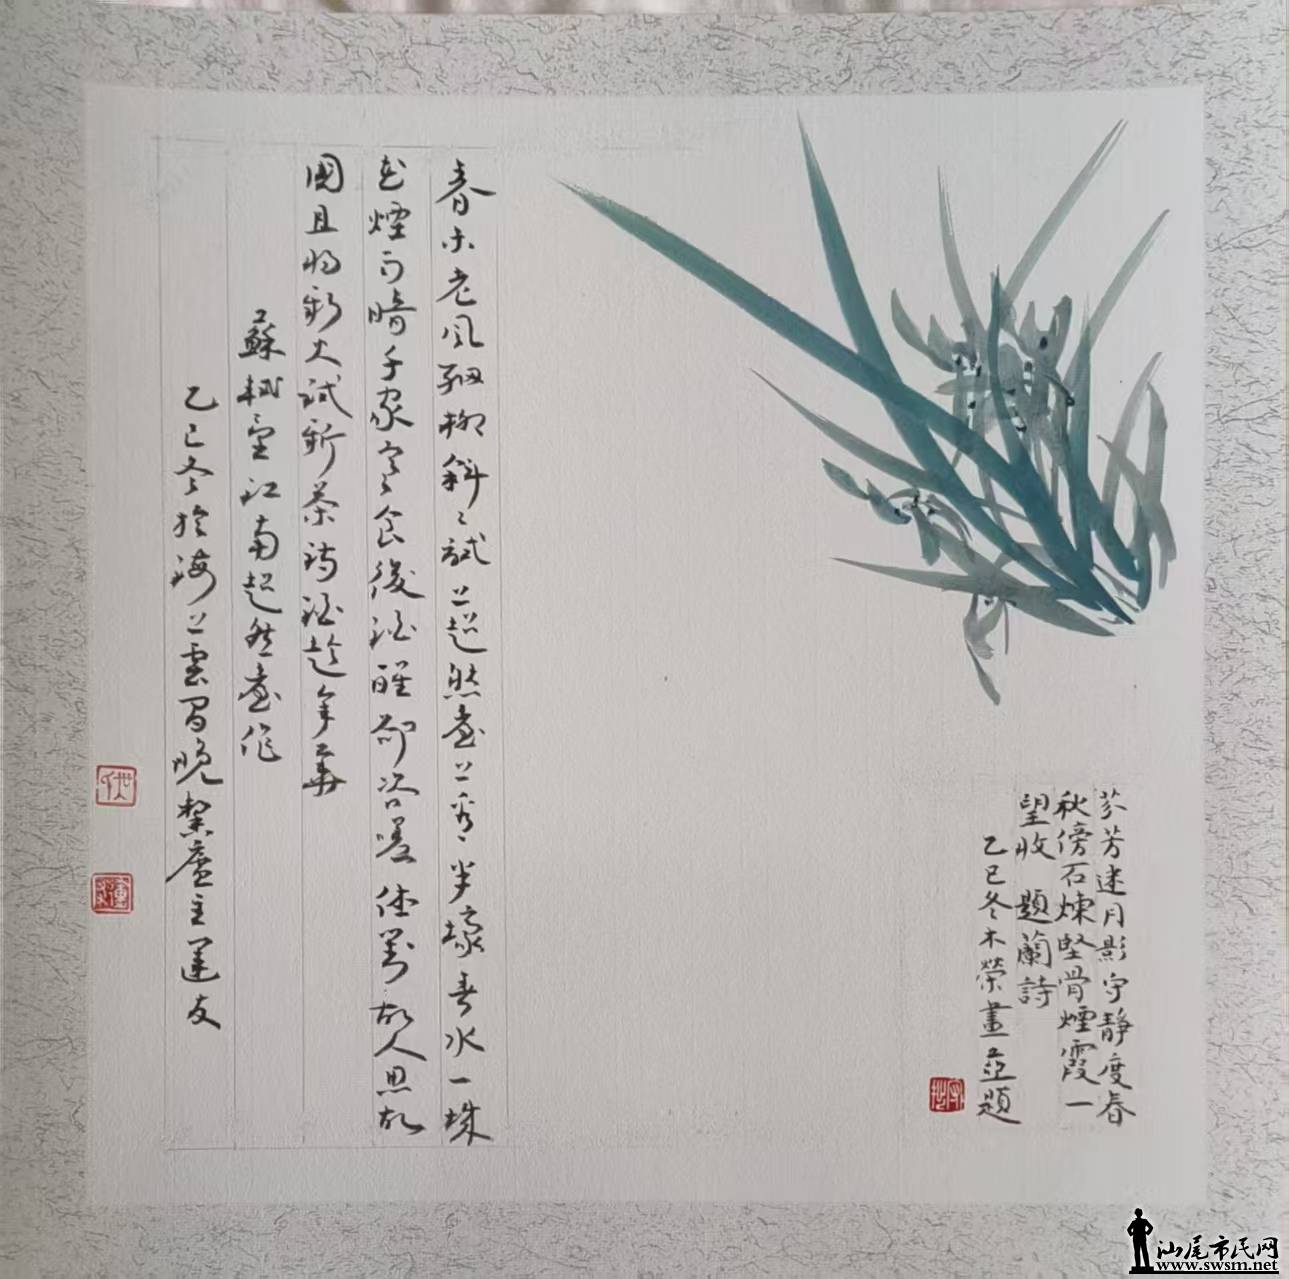 芬芳迷月影守靜度春
秋傍石煉堅骨煙霞一
望收 題蘭詩
乙巳冬木榮畫並題
春未老風細柳斜〻試上超然臺上看半壕春水一城
花煙雨暗千家寒食後酒醒卻咨嗟休對故人思故
國且將新火試新茶詩酒趁年華
蘇軾望江南超然臺作
乙巳冬於海上雲間晚絜廬主運友
汕尾市民网
www.swsm.net